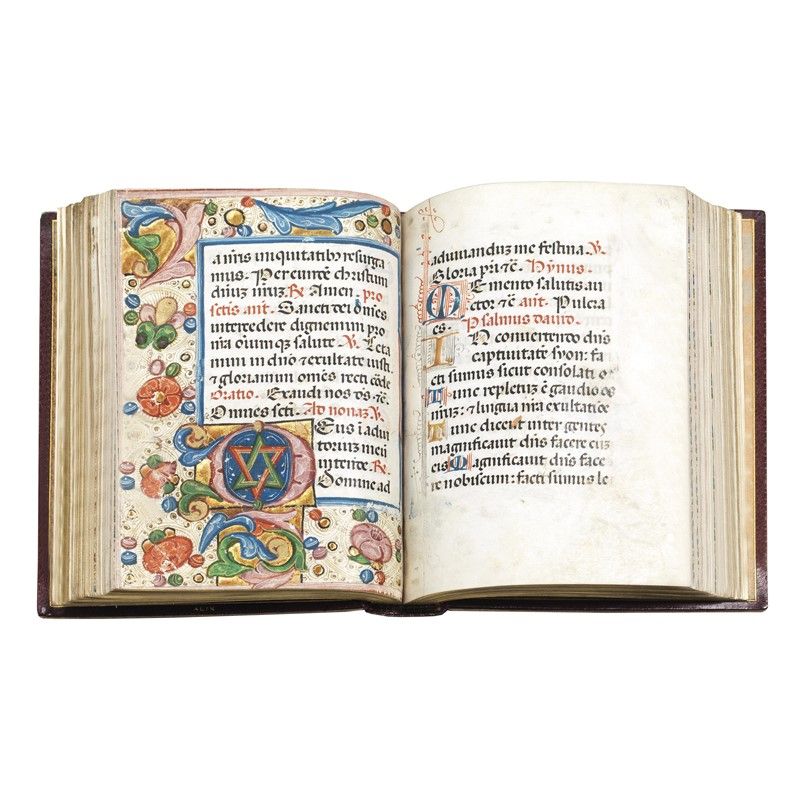 a nr̄is iniquitatib⁹ resurga
mus. Per eundē christum
dn̄um nr̄uz. ℟. Amen. pro
sctis an̄t. Sancti dei om̄es
intercedere dignemini pro
nr̄a oiumque salute. ℣. Leta
mini in dn̄o & exultate iusti
& gloriamini om̄es recti corde
Oratio. Exaudi nos ds̄ &c̄.
Omnes sctī. Ad nonaz ℣.
Deus ī adiu
torium meū
intende. ℟.
Domine ad
adiuuanduz me festina. ℣.
Gloria pr̄i &c̄. Hymus.
Memento salutis au
ctor &c̄. an̄t. Pulcra
es. Psalmus dauid.
In conuertendo dn̄s
captiuitatē syon: fa
cti sumus sicut consolati
Tunc repletuz ē gaudio os
nr̄uz: & lingua nr̄a exultatiōe
Tunc dicent inter gentes
magnificauit dn̄s facere cuz
eis Magnificauit dn̄s face
re nobiscum: facti sumus le